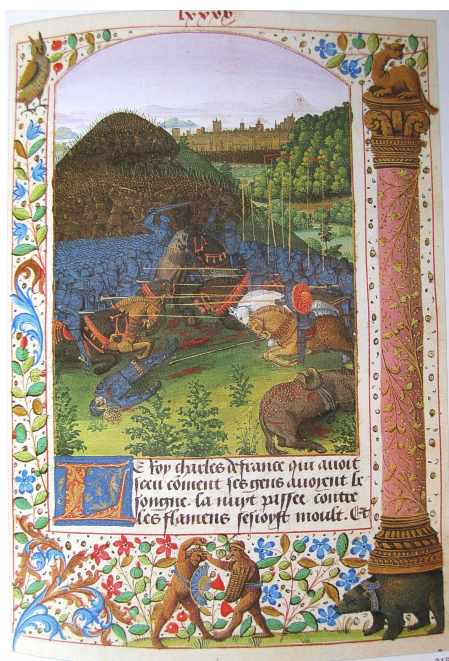 lxxxv
Le Roy charles de france qui auoit
sceu cõment ses gens auoyent be
songne. la nuyt passee contre
les flamens sesioyst moult. Et
215